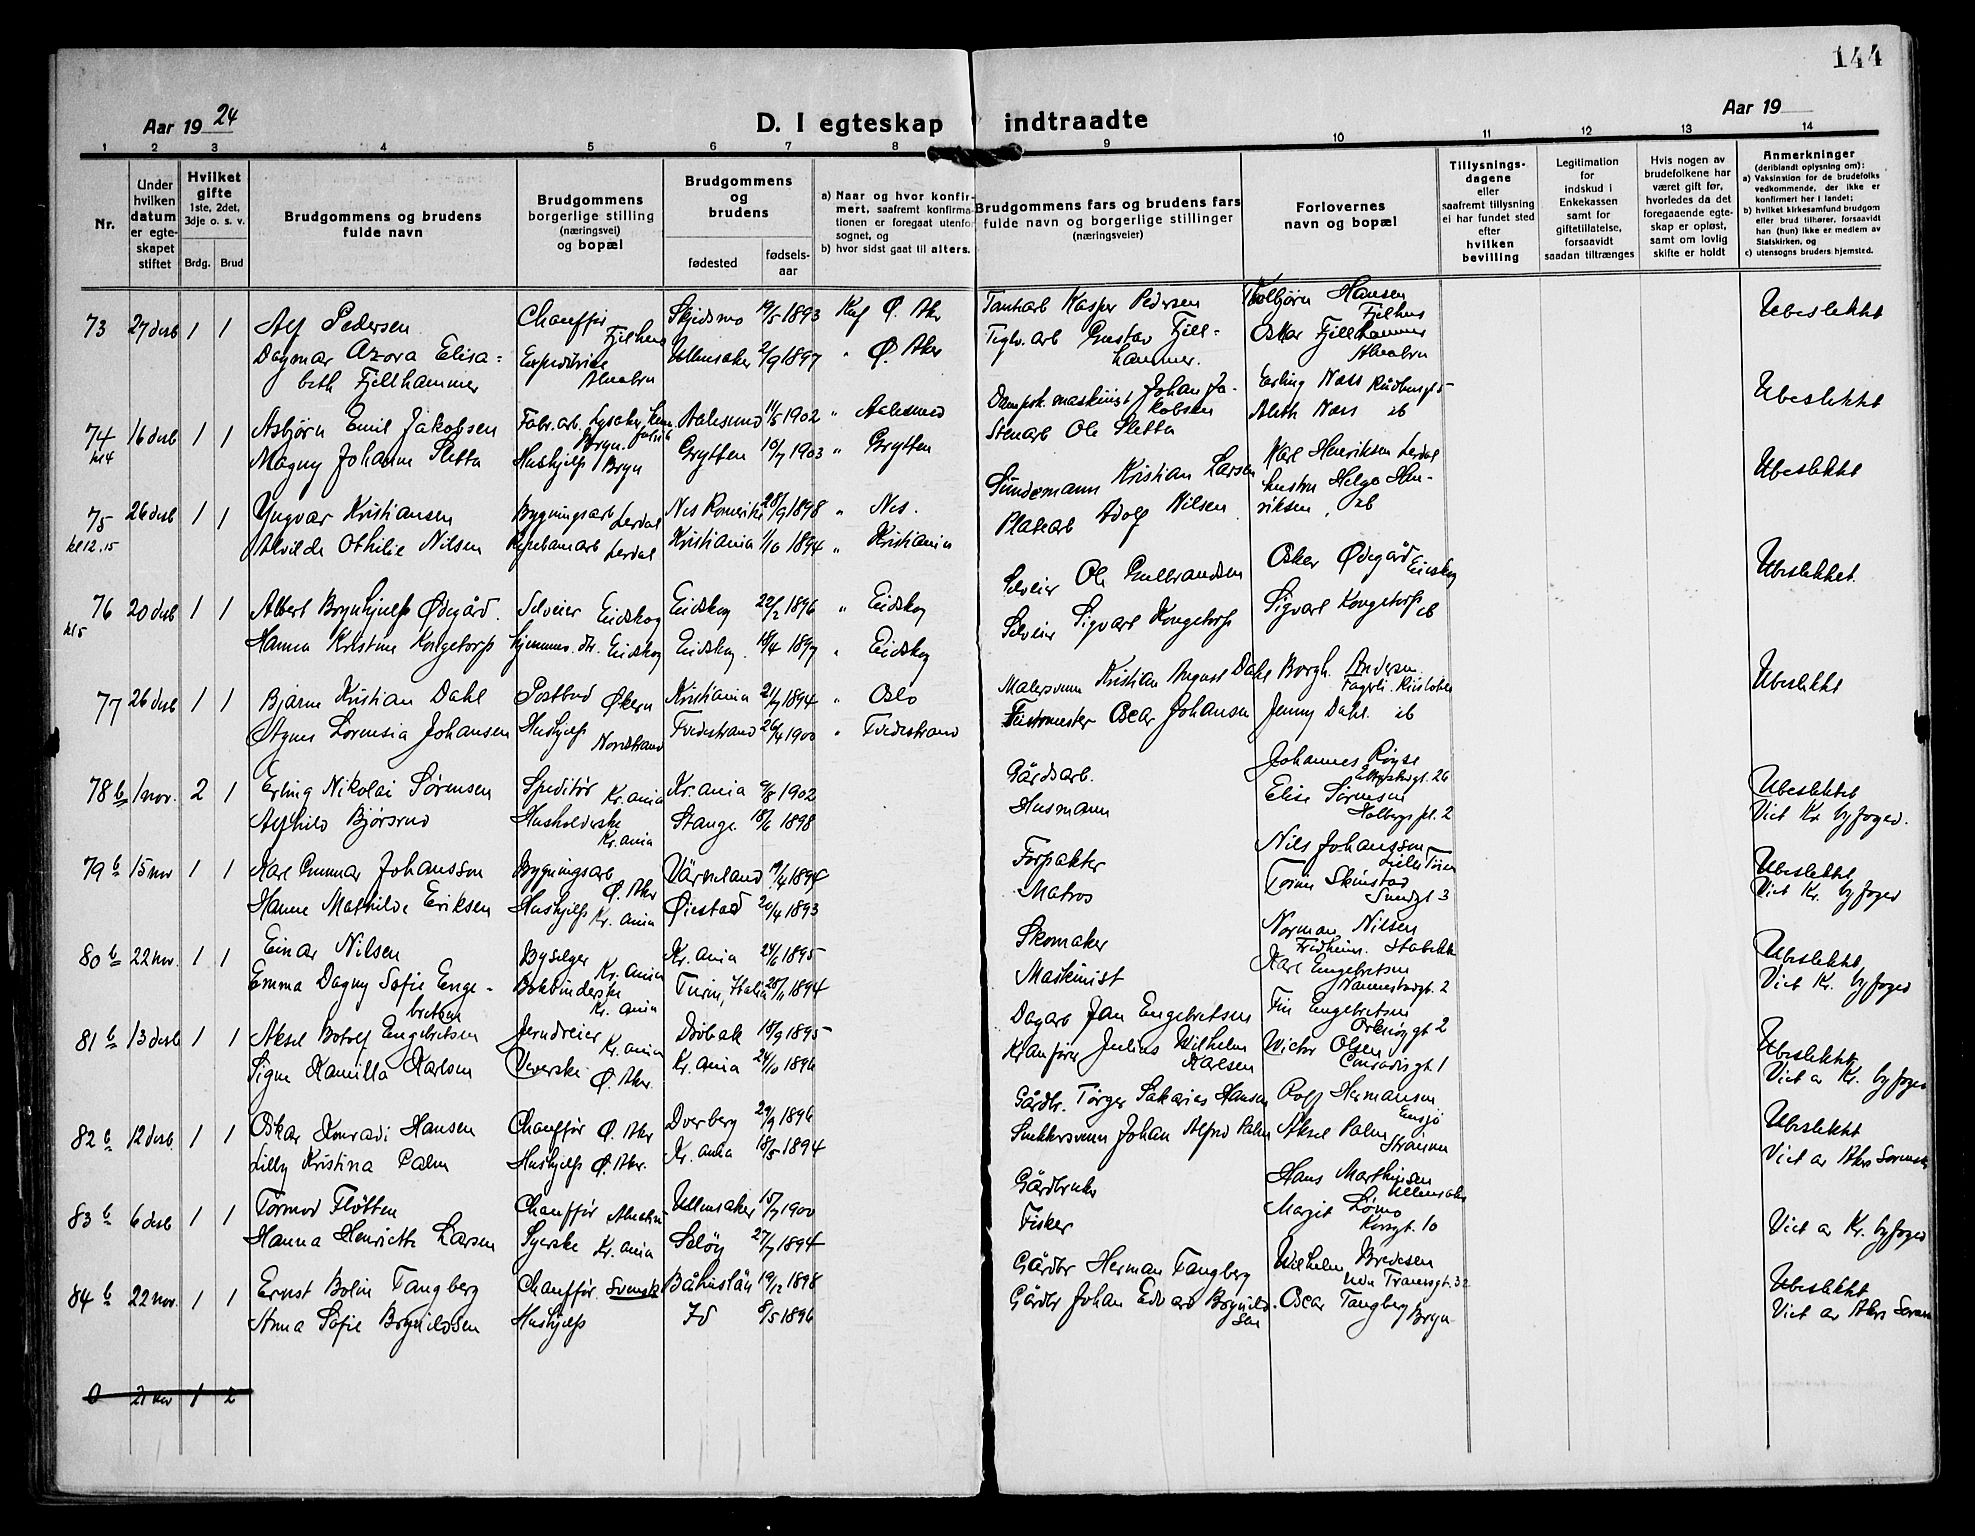 144
Aar 19 24
D. I egteskap indtraadte
Aar 19
1 2 3 4 5 6 7 8 9 10 11 12 13 14
Nr.
Under hvilken datum er egteskapet stiftet
Hvilket gifte 1ste, 2det, 3dje o. s. v.
Brdg. Brud
Brudgommens og brudens fulde navn
Brudgommens borgerlige stilling (næringsvei) og bopæl
Brudgommens og brudens
fødested
fødselsaar
a) Naar og hvor konfirmert, saafremt konfirmationen er foregaat utenfor sognet, og
b) hvor sidst gaat til alters.
Brudgommens fars og brudens fars fulde navn og borgerlige stillinger (næringsveier)
Forlovernes navn og bopæl
Tillysningsdagene eller saafremt tillysning ei har fundet sted efter hvilken bevilling
Legitimation for indskud i Enkekassen samt for giftetillatelse, forsaavidt saadan tiltrænges
Hvis nogen av brudefolkene har været gift før, hvorledes da det foregaaende egteskap er opløst, samt om lovlig skifte er holdt
Anmerkninger (deriblandt oplysning om):
a) Vaksination for de brudefolks vedkommende, der ikke er konfirmert her i landet;
b) hvilket kirkesamfund brudgom eller brud tilhører, forsaavidt han (hun) ikke er medlem av Statskirken, og
c) utensogns bruders hjemsted.
73 27 desb 1 1 Alf Pedersen Chauffør Fjelhus Skjedsmo 19/5 1893 Knf Ø. Aker Tomtearb Kasper Pedersen Torbjørn Hansen Fjelhus Ubeslektet
Dagmar Azora Elisabeth Fjellhammer Expeditrice Alnabru Ullensaker 2/9 1897 " Ø. Aker Teglv. arb Gustav Fjellhammer. Oskar Fjellhammer Alnabru
74 16 desb 1 1 Asbjørn Emil Jakobsen Fabr. arb. Lysaker Aalesund 11/5 1902 " Aalesund Dampsk. maskinist Johan Jakobsen Erling Næss Ubeslektet
kl 4 Magny Johanne Sletta Hushjelp Bryn Grytten 10/7 1903 " Grytten Stenarb Ole Sletta Aleth Næss ib
75 26 desb 1 1 Yngvar Kristiansen Bygningsarb Lerdal Nes Romerike 28/9 1898 " Nes. Kristian Larsen Karl Henriksen Lerdal Ubeslektet
kl 12.15 Alvilde Othilie Nilsen Lerdal Kristiania 1/10 1894 " Kristiania Platearb Adolf Nilsen Helga Henriksen, ib
76 20 desb 1 1 Albert Brynhjulf Ødegård. Selveier Eidskog Eidskog 22/2 1896 " Eidskog Selveier Ole Gulbrandsen Oskar Ødegård Eidskog Ubeslektet.
kl 5 Hanna Kristine Kongetorp Hjemmev. dtr. Eidskog Eidskog. 18/4 1897 " Eidskog Selveier Sigvart Kongetorp Sigvart Kongetorp ib
77 26 desb 1 1 Bjarne Kristian Dahl Postbud Økern Kristiania 21/7 1894 " Oslo Malersvenn Kristian August Dahl Borgh. Andersen Fagerli. Ubeslektet
Agnes Lorensia Johansen Hushjelp Nordstrand Tvedestrand 26/4 1900 " Tvedestrand Oscar Johansen Jenny Dahl. ib
78 b 1 nov. 2 1 Erling Nikolai Sørensen Speditør Kr.ania Kr.ania 9/8 1902 Gårdsarb. Johannes Røyse 26 Ubeslektet
Alfhild Bjørsrud Husholderske Kr.ania Stange 18/6 1898 Husmann Elise Sørensen Holbergs pl. 2 Viet Kr. byfoged.
79 b 15 nov 1 1 Karl Gunnar Johansson Bygningsarb Ø. Aker Värmland 19/4 1894 Forpakter Nils Johansson Ubeslektet
Hanne Mathilde Eriksen Hushjelp Kr. ania Øiestad 20/4 1893 Matros Skinstad 3 Viet Kr. byfoged
80 b 22 nov. 1 1 Einar Nilsen Byselger Kr. ania Kr. ania 24/6 1895 Skomaker Norman Nilsen Fridheim. Stabekk Ubeslektet
Emma Dagny Sofie Engebretsen Bokbinderske Kr. ania Turin, Italia 28/11 1894 Maskinist Karl Engebretsen Nannestadgt. 2 Viet Kr. byfoged
81 b 13 desb 1 1 Aksel Botolf Engebretsen Jerndreier Kr. ania Drøbak 18/9 1895 Dagarb Jan Engebretsen Fin Engebretsen Orknøygt 2 Ubeslektet
Signe Kamilla Karlsen Veverske Ø. Aker. Kr. ania 24/10 1896 Kranfører Julius Wilhelm Karlsen Victor Olsen Conradisgt 1 Viet av Kr. byfoged
82 b 12 desb 1 1 Oskar Konradi Hansen Chauffør Ø. Aker Dverberg 29/9 1896 Gårdbr. Tørger Sakarias Hansen Rolf Hermansen Ensjø Ubeslektet
Lilly Kristina Palm Hushjelp Ø. Aker. Kr. ania 18/5 1894 Snekkersvenn Johan Alfred Palm Aksel Palm Viet av Akers Sorensk
83 b 6 desb 1 1 Tormod Fløtten Chauffør Alnabru Ullensaker 15/7 1900 Gårdbruker Hans Marthinsen Ullensaker
Hanna Henriette Larsen Syerske Kr. ania Seløy 27/7 1894 Fisker Margit Lømo Korsgt. 10 Viet av Kr. byfoged
84 b 22 nov. 1 1 Ernst Bolin Tangberg Chauffør Svensk Båhuslän 19/2 1898 Gårdbr Herman Tangberg Wilhelm Bredesen Tromsgt. 32 Ubeslektet
Anna Sofie Brynildsen Hushjelp Id 8/5 1896 Gårdbr Johan Edvard Brynildsen Oscar Tangberg Bryn Viet av Akers Sorensk
0 21 nov 1 2